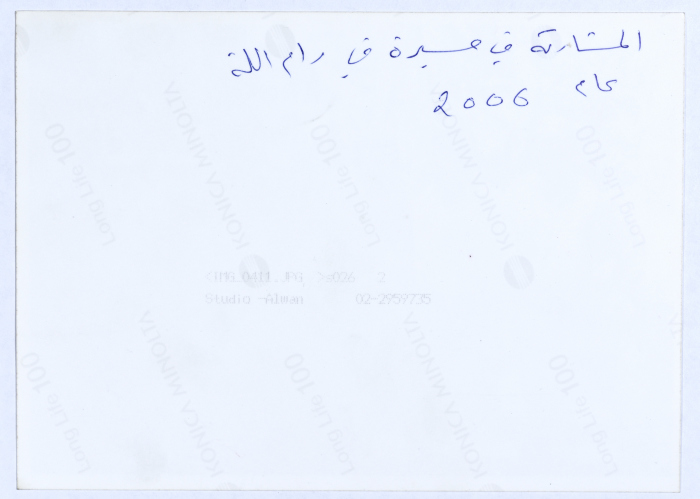 المشاركة في مسيرة في رام اللة
عام
2006
<IMG_0411.JPG >026 2
Studio -Aiman 02-2959735
Long Life 100
KONICA MINOLTA
Long Life 100
KONICA MINOLTA
Long Life 100
Long Life 100
KONICA MINOLTA
Long Life 100
KONICA MINOLTA
Long Life 100